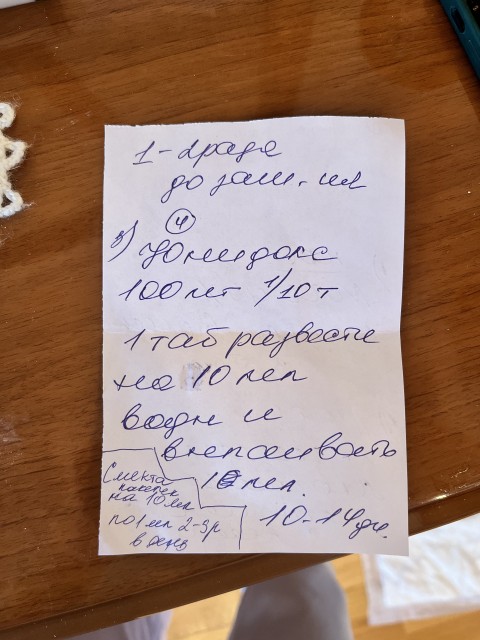 1-2 раза
до заш. ил
④
3) Юнидокс
100 мг 1/10 т
1 таб развести
на 10 мл
воды и
выпаивать
1 мл.
10-14 дн.
Смекта
пакетик
на 10 мл
по 1 мл 2-3 р
в день